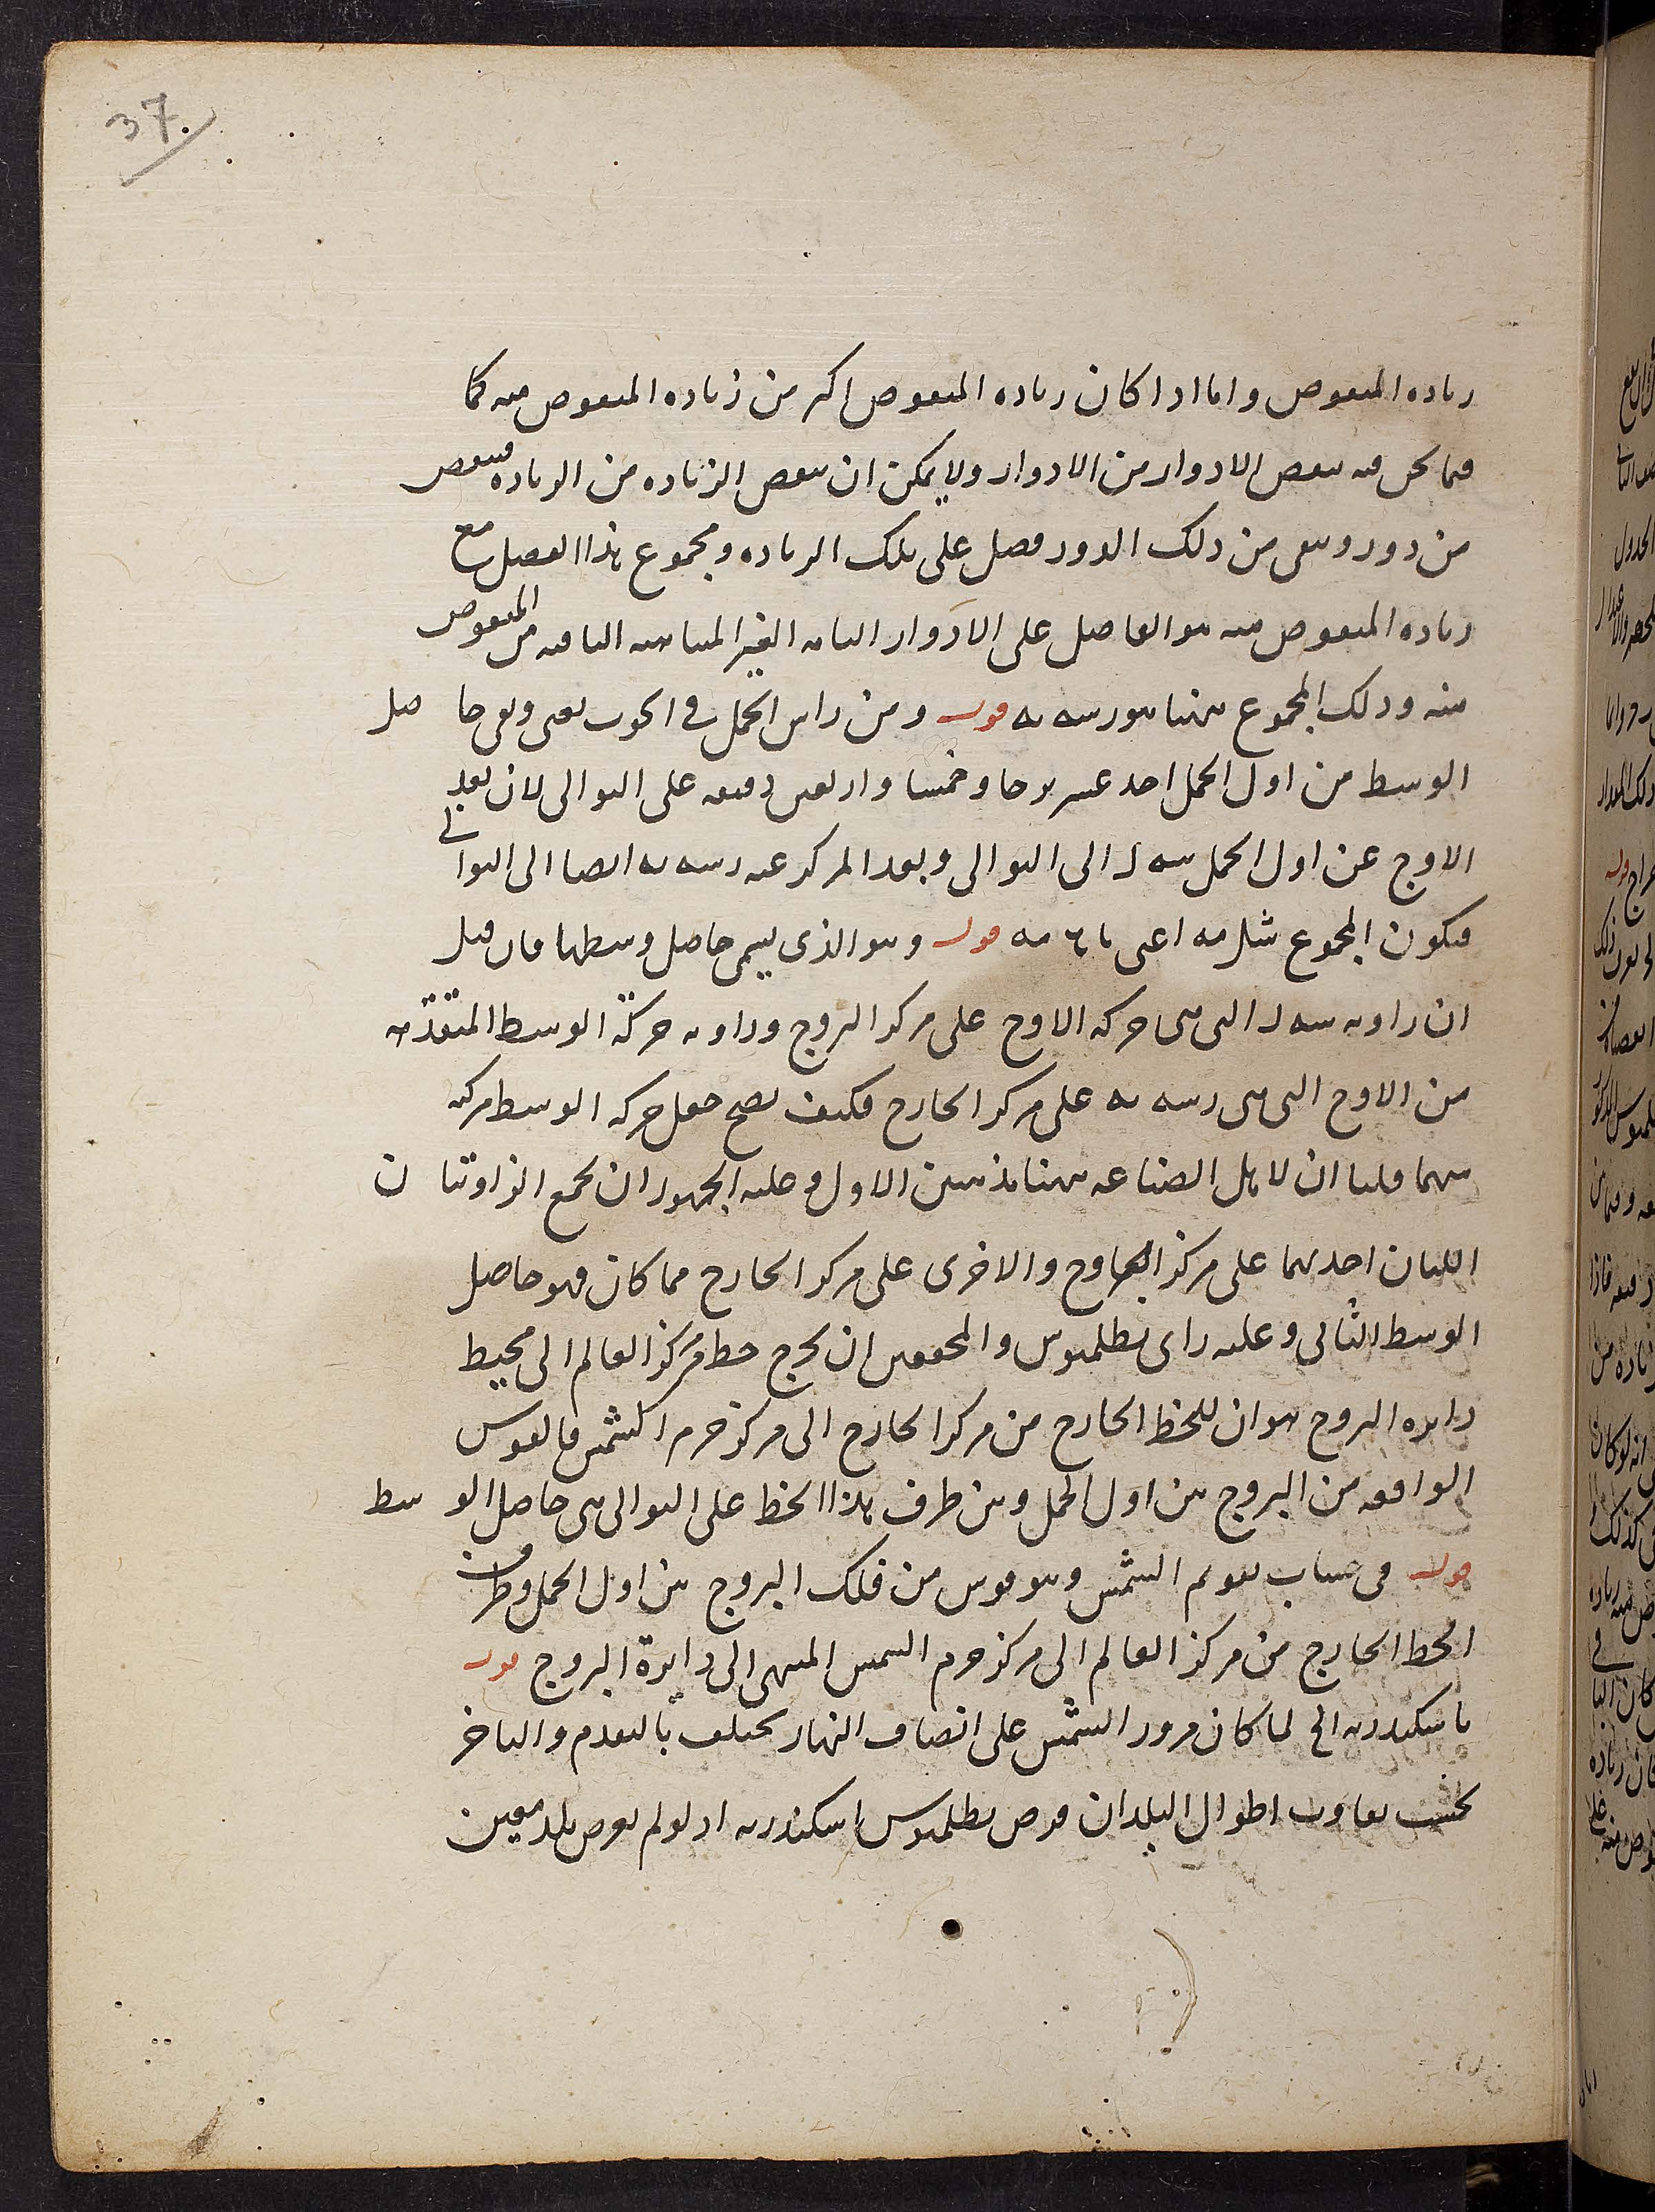 37
زياده المنقوص واما اذا كان زياده المنقوص اكثر من زياده المنقوص منه كما
فيما نحن فيه ينقص الادوار من الادوار ولا يمكن ان ينقص الزياده من الزياده فينقص
من دور ويبقى من ذلك الدور فضل على تلك الزياده ومجموع هذا الفضل مع
زياده المنقوص منه هو الفاضل على الادوار التامه الغير المتناهيه الباقيه من المنقوص
منه وذلك المجموع ههنا هو رسه يه قوله ومن راس الحمل في الحوت يعنى وبقى حاصل
الوسط من اول الحمل احد عشر برجا وخمسا واربعين دقيقه على التوالى لان بعد
الاوج عن اول الحمل سه ل الى التوالى وبعد المركز عنه رسه يه ايضا الى التوالى
فيكون المجموع شل مه اعنى يا ٥ مه قوله وهو الذى يسمى حاصل وسطها فان قيل
ان زاويه سه ل التى هى حركه الاوج على مركز البروج وزاويه حركة الوسط المتقدمه
من الاوج التى هى رسه يه على مركز الخارج فكيف يصح جعل حركه الوسط مركبه
منهما قلنا ان لاهل الصناعه ههنا مذهبين الاول وعليه الجمهور ان يجمع الزاويتان
اللتان احديهما على مركز البروج والاخرى على مركز الخارج فما كان فهو حاصل
الوسط الثانى وعليه راى بطلميوس والمحققين ان يخرج خط من مركز العالم الى محيط
دايره البروج مواز للخط الخارج من مركز الخارج الى مركز جرم الشمس فالقوس
الواقعه من البروج بين اول الحمل وبين طرف هذا الخط على التوالى هى حاصل الوسط
قوله فى حساب تقويم الشمس وهو قوس من فلك البروج بين اول الحمل وطرف
الخط الخارج من مركز العالم الى مركز جرم الشمس المنتهى الى دايرة البروج قوله
باسكندريه الخ لما كان مرور الشمس على انصاف النهار يختلف بالتقدم والتاخر
بحسب تفاوت اطوال البلدان فرض بطلميوس اسكندريه اذ لو لم يفرض بلد معين